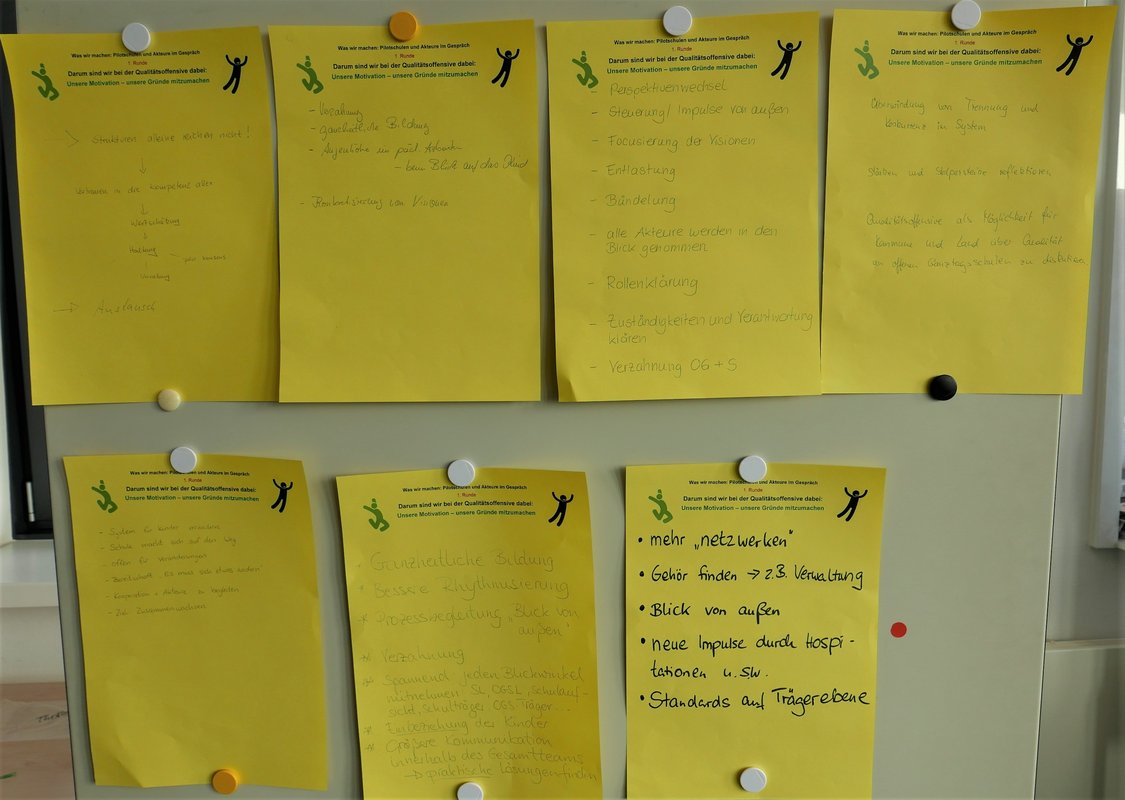 Was wir machen: Pilotschulen und Akteure im Gespräch
1. Runde
Darum sind wir bei der Qualitätsoffensive dabei:
Unsere Motivation – unsere Gründe mitzumachen
Strukturen alleine reichen nicht!
↓
Vertrauen in die Kompetenz aller
↓
Wertschätzung
↓
Haltung
→ Austausch
Was wir machen: Pilotschulen und Akteure im Gespräch
1. Runde
Darum sind wir bei der Qualitätsoffensive dabei:
Unsere Motivation – unsere Gründe mitzumachen
- Verzahnung
- ganzheitliche Bildung
- Augenhöhe im päd.
- beim Blick auf das Kind
- von Visionen
Was wir machen: Pilotschulen und Akteure im Gespräch
1. Runde
Darum sind wir bei der Qualitätsoffensive dabei:
Unsere Motivation – unsere Gründe mitzumachen
- Perspektivenwechsel
- Steuerung / Impulse von außen
- Focusierung der Visionen
- Entlastung
- Bündelung
- alle Akteure werden in den
Blick genommen
- Rollenklärung
- Zuständigkeiten und Verantwortung
klären
- Verzahnung OG + S
Was wir machen: Pilotschulen und Akteure im Gespräch
1. Runde
Darum sind wir bei der Qualitätsoffensive dabei:
Unsere Motivation – unsere Gründe mitzumachen
Überwindung von Trennung und
Konkurrenz im System
Stärken und Stolpersteine reflektieren
Qualitätsoffensive als Möglichkeit für
Kommune und Land über Qualität
an offenen Ganztagsschulen zu diskutieren
Was wir machen: Pilotschulen und Akteure im Gespräch
1. Runde
Darum sind wir bei der Qualitätsoffensive dabei:
Unsere Motivation – unsere Gründe mitzumachen
- System für Kinder
- Schule macht sich auf den Weg
- offen für Veränderungen
- Bereitschaft „Es muss sich etwas ändern"
- Kooperation + Akteure zu begleiten
- Ziel: Zusammenwachsen
Was wir machen: Pilotschulen und Akteure im Gespräch
1. Runde
Darum sind wir bei der Qualitätsoffensive dabei:
Unsere Motivation – unsere Gründe mitzumachen
* Ganzheitliche Bildung
* Bessere Rhythmisierung
* Prozessbegleitung „Blick von
außen"
* Verzahnung
* Spannend jeden Blickwinkel
mitnehmen: SL, OGSL, Schulauf-
sicht, Schulträger, OGS-Träger...
* Einbeziehung der Kinder
* Größere Kommunikation
innerhalb des Gesamtteams
→ praktische Lösungen finden
Was wir machen: Pilotschulen und Akteure im Gespräch
1. Runde
Darum sind wir bei der Qualitätsoffensive dabei:
Unsere Motivation – unsere Gründe mitzumachen
• mehr „netzwerken"
• Gehör finden → z.B. Verwaltung
• Blick von außen
• neue Impulse durch Hospi-
tationen u.sw.
• Standards auf Trägerebene